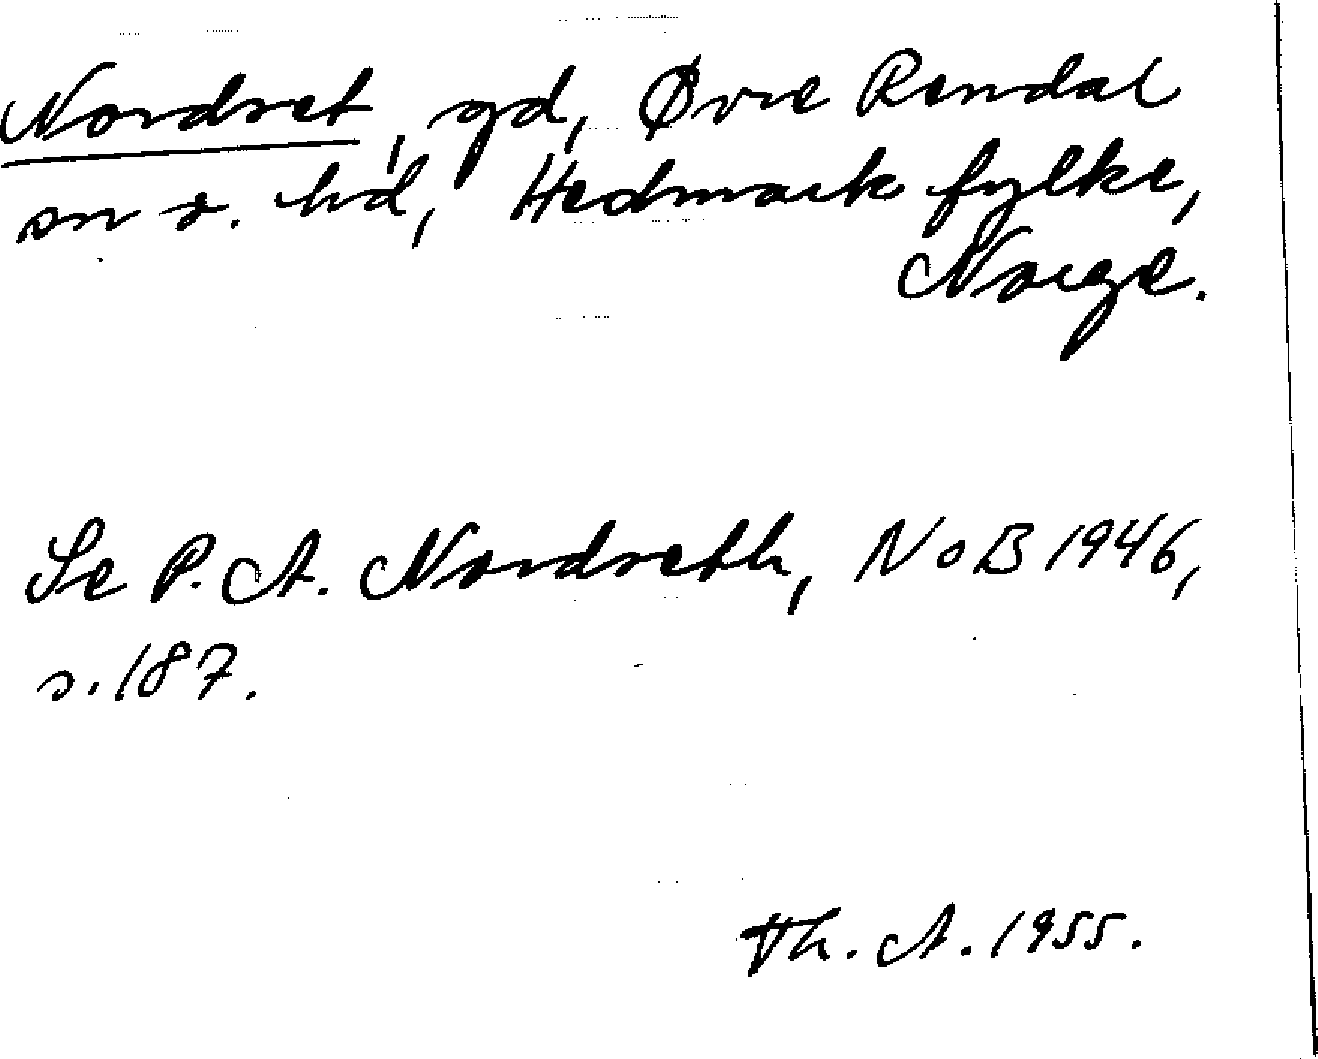 Nordset, gd, Øvre Rendal
sn o. hd, Hedmark fylke,
Norge.
Se P. A. Nordseth, NoB 1946,
s. 187.
Th. A. 1955.